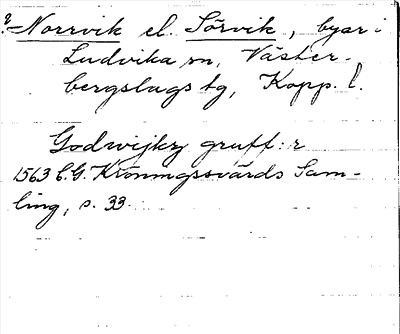 ? Norrvik el. Sörvik, byar i
Ludvika sn, Väster-
bergslags tg, Kopp. l.
Godwijky gruff: r
1563 C.G. Kröningssvärds Sam-
ling, s. 33.